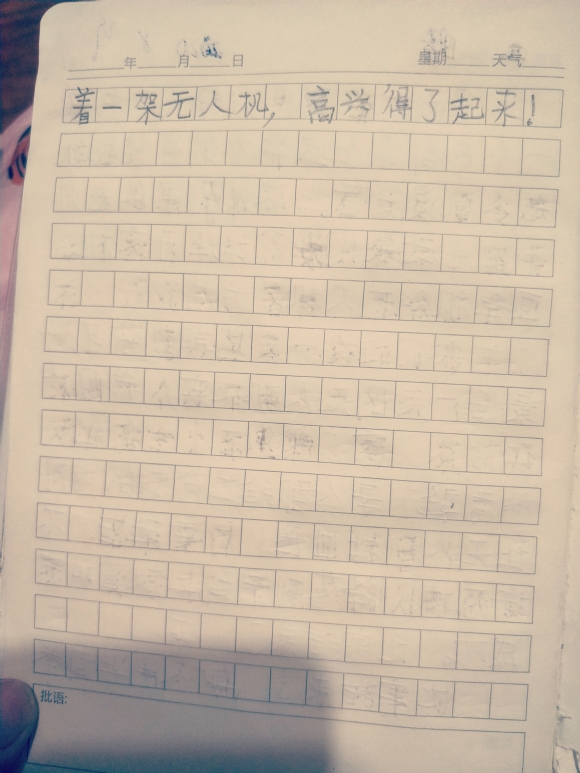 年 月 日 星期 天气
着一架无人机，高兴得了起来！
批语: